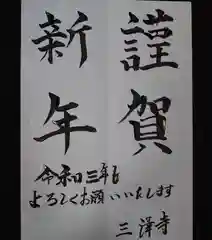 謹賀
新年
令和三年も
よろしくお願いいたします
三澤寺